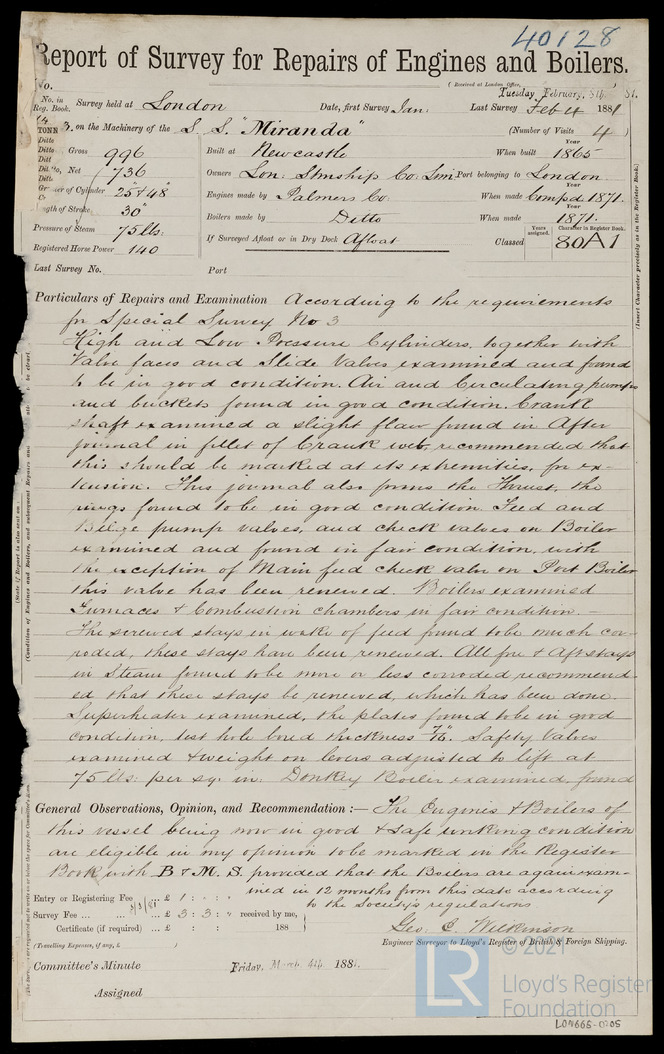 40128
Report of Survey for Repairs of Engines and Boilers.
(Received at London Office,
No.
Tuesday February, 8th, 81.
No. in Reg. Book. Survey held at London Date, first Survey Jan: Last Survey Feb 4 1881
on the Machinery of the S. S. "Miranda" (Number of Visits 4)
TONN
Gross 996
Net 736
Built at Newcastle When built 1865
Owners Lon: Stmship Co: Lim Port belonging to London
Diameter of Cylinder 25" & 48"
Engines made by Palmers Co: When made Compd 1871.
Length of Stroke 30"
Boilers made by Ditto When made 1871.
Pressure of Steam 75 lbs:
Registered Horse Power 140
If Surveyed Afloat or in Dry Dock Afloat
Years assigned. Character in Register Book.
Classed 80A1
(Insert Character precisely as in the Register Book.)
Last Survey No. Port
Particulars of Repairs and Examination According to the requirements
for Special Survey No 3
High and Low Pressure Cylinders, together with
Valve faces and Slide Valves examined and found
to be in good condition. Air and Circulating pumps
and buckets found in good condition. Crank
shaft examined a slight flaw found in After
journal in fillet of Crank web, recommended that
this should be marked at its extremities, for ex-
tension. This journal also forms the Thrust, the
rings found to be in good condition. Feed and
Bilge pump valves, and check valves on Boiler
examined and found in fair condition, with
the exception of Main feed check valve on Port Boiler
this valve has been renewed. Boilers examined
Furnaces & Combustion chambers in fair condition. -
The screwed stays in wake of feed found to be much cor-
roded, these stays have been renewed. All fore & Aft stays
in Steam found to be more or less corroded recommend-
ed that these stays be renewed, which has been done.
Superheater examined, the plates found to be in good
condition, test hole bored thickness 7/16". Safety Valves
examined & weight on levers adjusted to lift at
75 lbs: per sq. in: Donkey Boiler examined, found
General Observations, Opinion, and Recommendation :— The Engines & Boilers of
this vessel being now in good & safe working condition
are eligible in my opinion to be marked in the Register
Book with B & M. S. provided that the Boilers are again exam-
ined in 12 months from this date according
to the Society's regulations
Entry or Registering Fee £ 1 : " : "
Survey Fee ... £ 3 : 3 : " received by me,
Certificate (if required) ... £ : : 188
(Travelling Expenses, if any, £ )
Geo. C. Wilkinson
Engineer Surveyor to Lloyd's Register of British & Foreign Shipping.
Committee's Minute Friday, March 4th 188
Assigned
© 2021
LR
Lloyd's Register
Foundation
LON665-0205